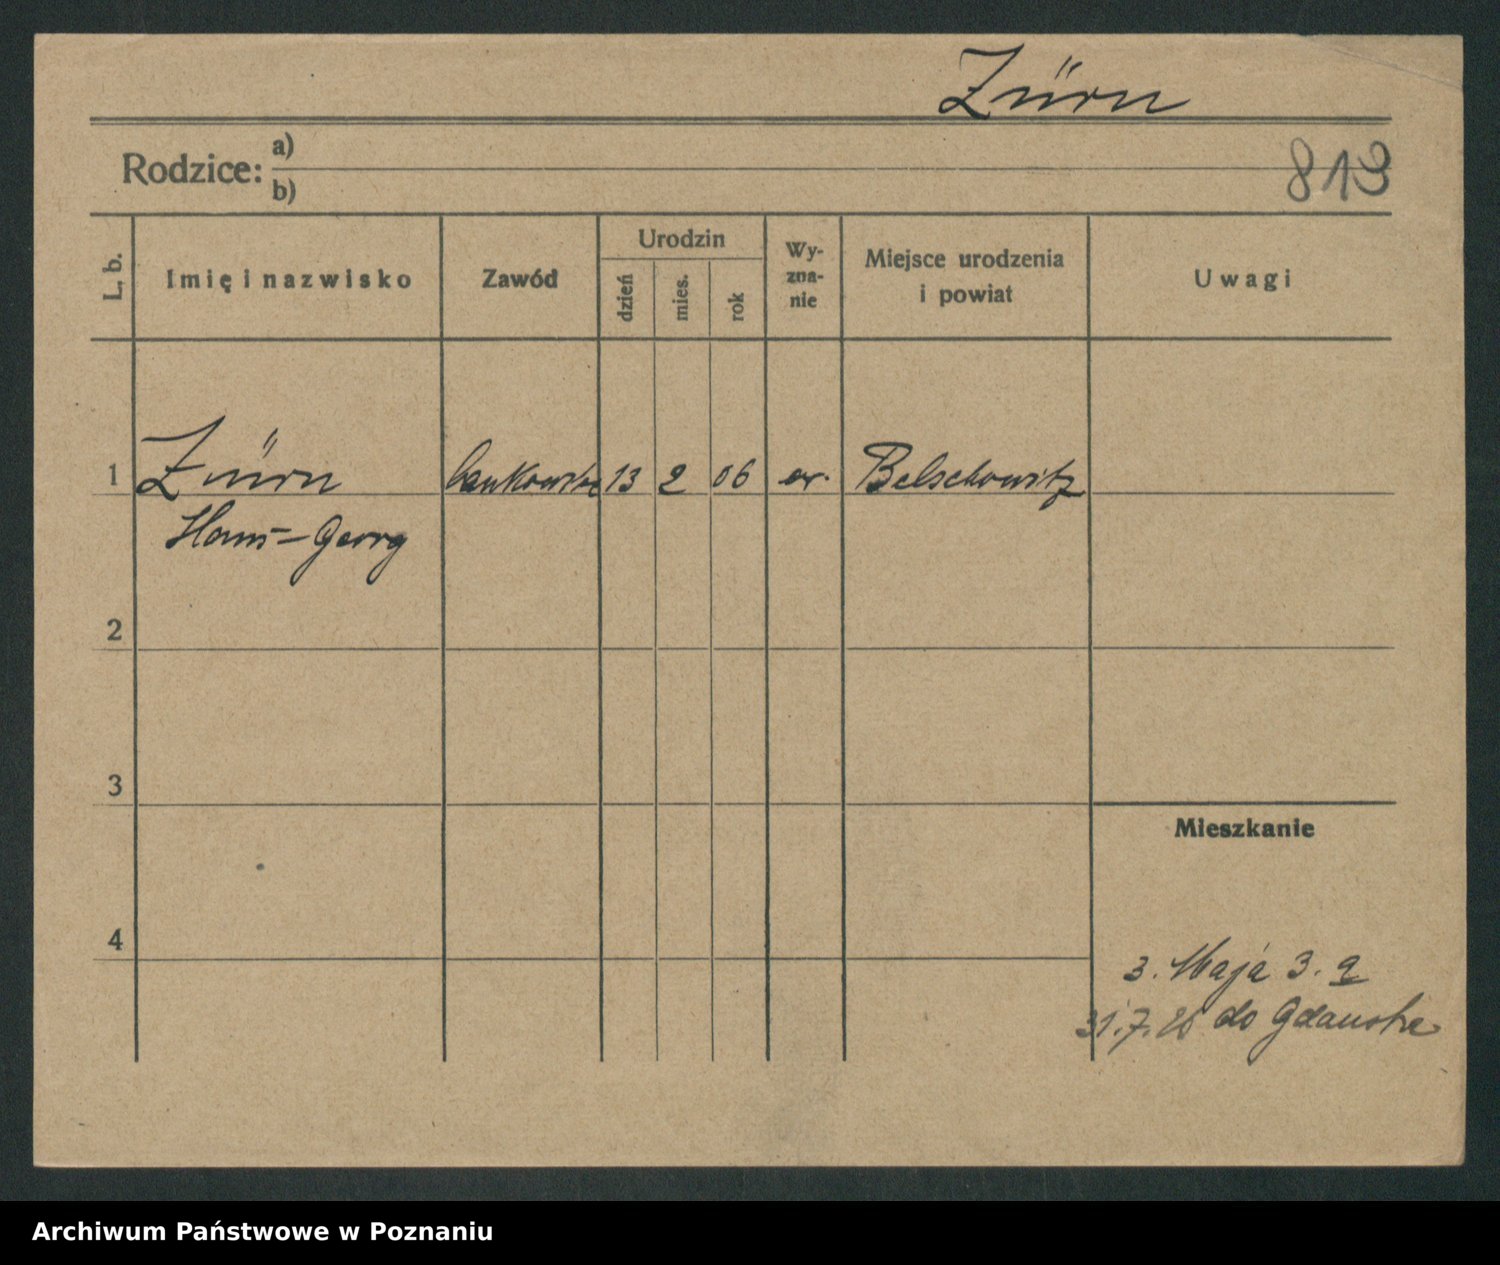 Zürn
Rodzice: a)
b)
813
L. b.
Imię i nazwisko
Zawód
Urodzin
dzień
mies.
rok
Wy-
zna-
nie
Miejsce urodzenia
i powiat
Uwagi
1 Zürn bankowiec 13 2 06 ew. Belschowitz
Hans-Georg
2
3
Mieszkanie
4
3. Maja 3. a
31.7.26 do Gdańska
Archiwum Państwowe w Poznaniu